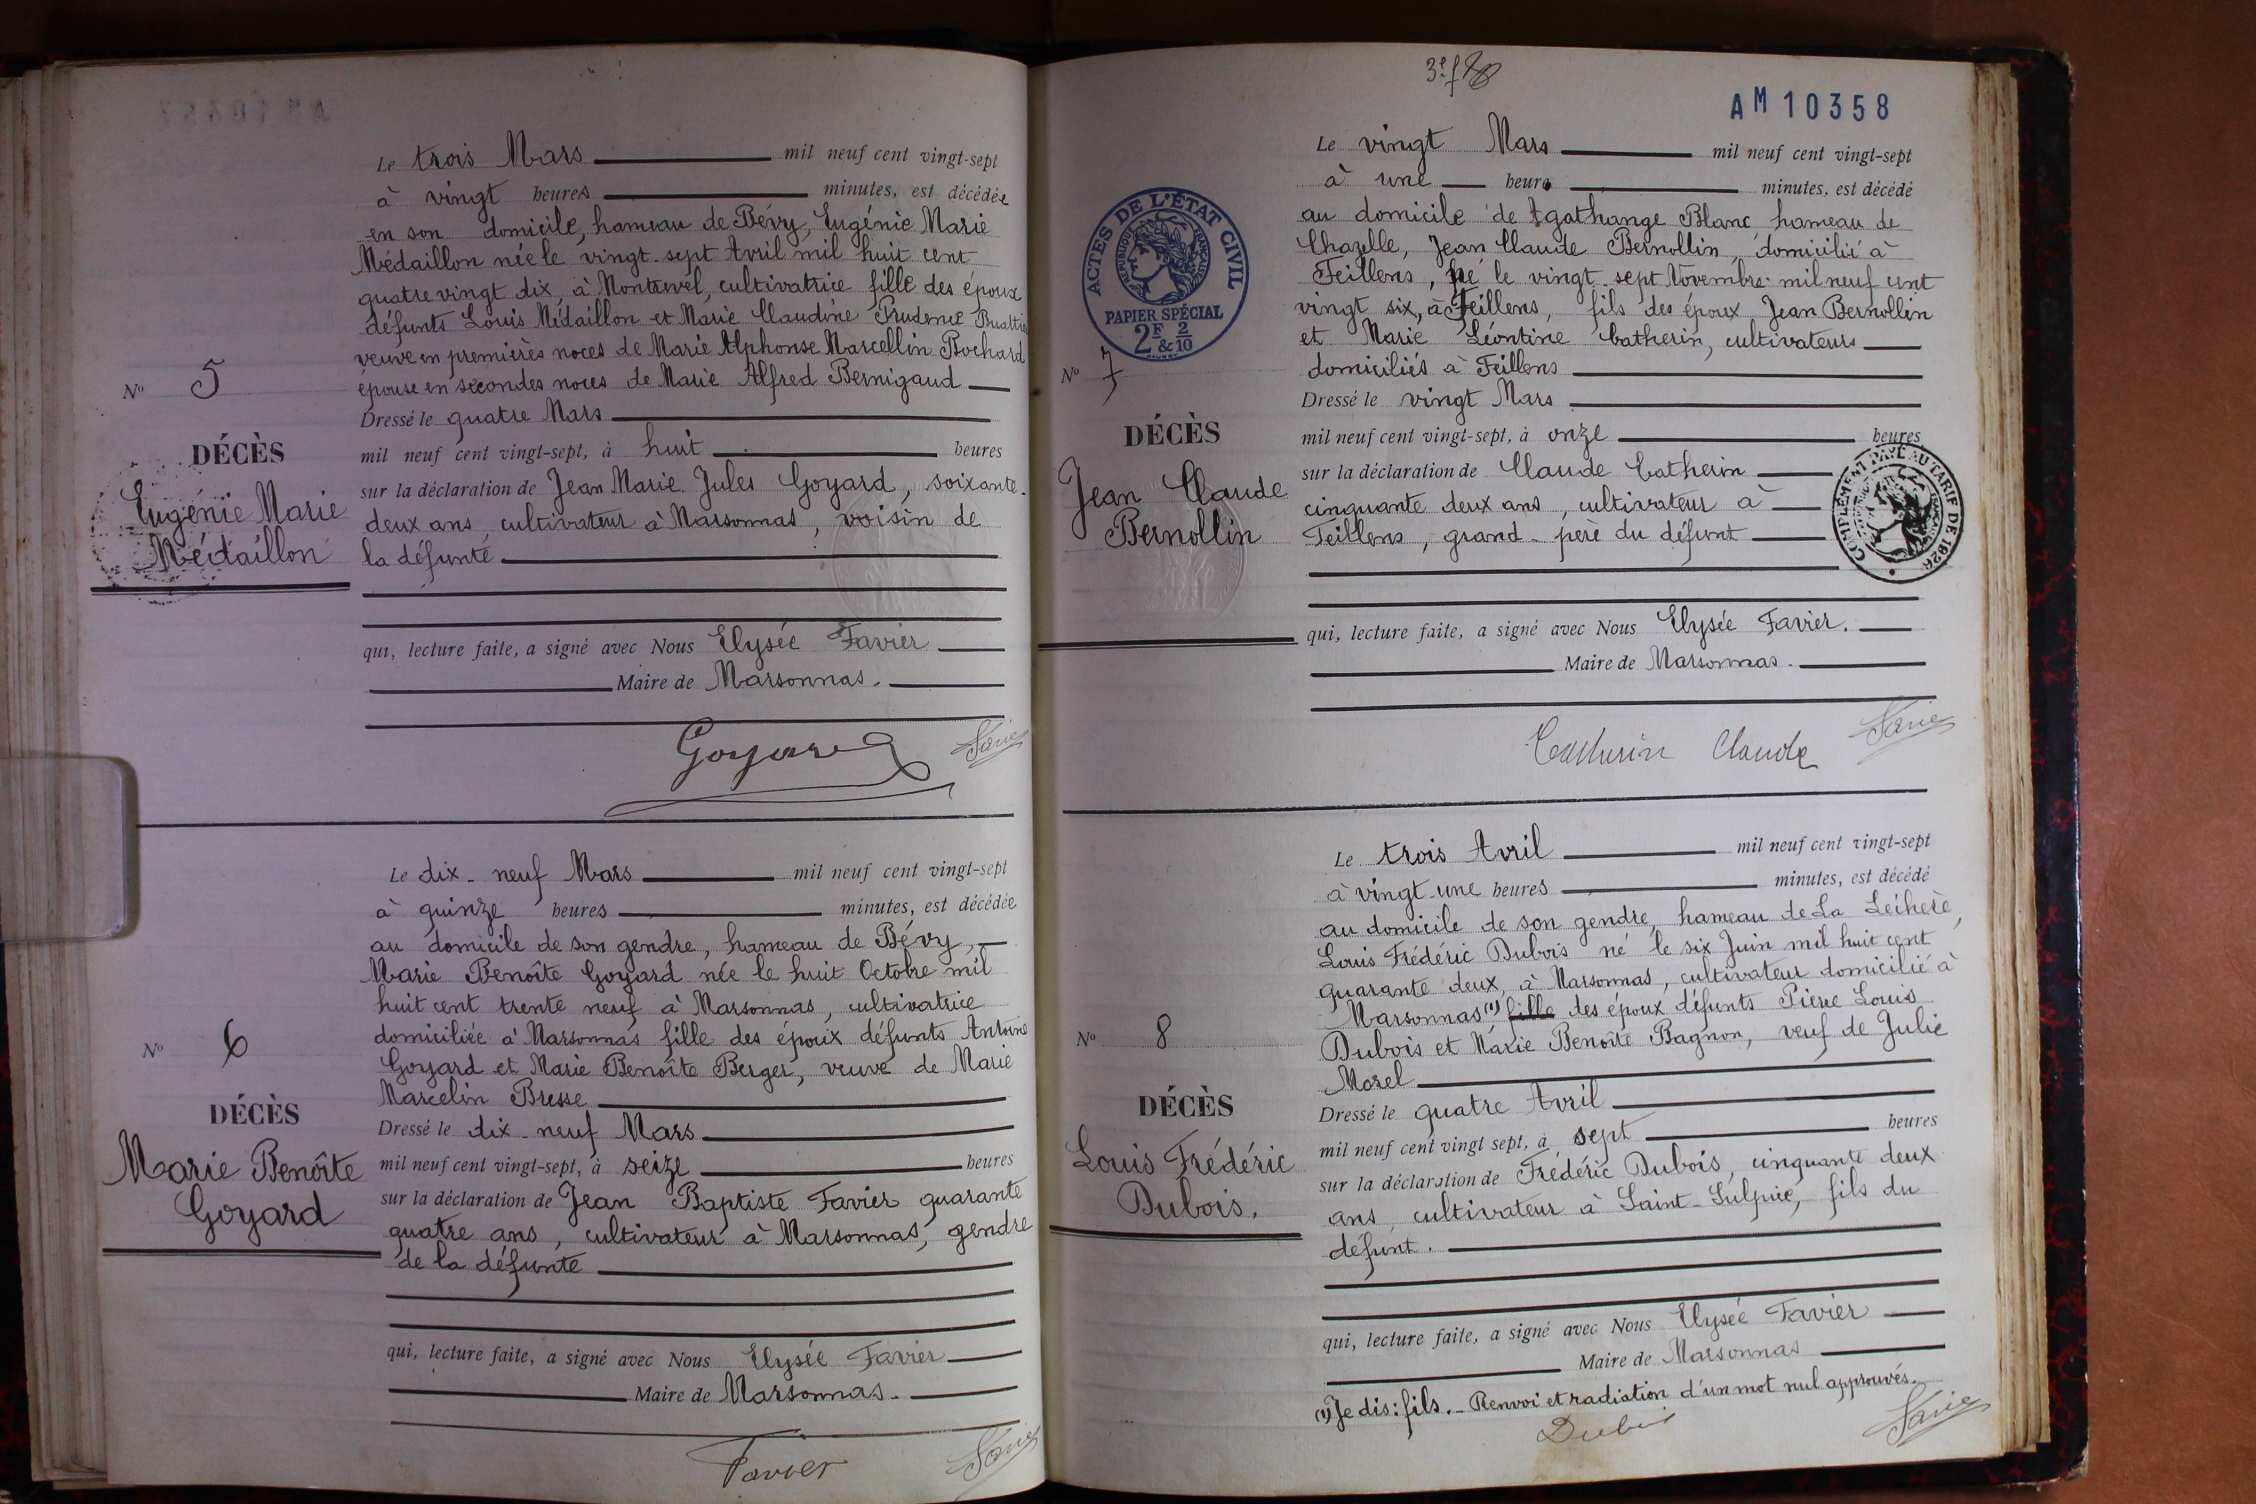 Le trois Mars mil neuf cent vingt-sept
à vingt heures minutes, est décédée
en son domicile, hameau de Bévy, Eugénie Marie
Médaillon née le vingt-sept Avril mil huit cent
quatre vingt dix, à Montrevel, cultivatrice fille des époux
défunts Louis Médaillon et Marie Claudine Prudence
veuve en premières noces de Marie Alphonse Marcellin Bochard
épouse en secondes noces de Marie Alfred Bernigaud
Dressé le quatre Mars
mil neuf cent vingt-sept, à huit heures
sur la déclaration de Jean Marie Jules Goyard, soixante-
deux ans, cultivateur à Marsonnas, voisin de
la défunte
qui, lecture faite, a signé avec Nous Elysée Favier
Maire de Marsonnas.
Goyard
Favier
No 5
DÉCÈS
Eugénie Marie
Médaillon
Le dix-neuf Mars mil neuf cent vingt-sept
à quinze heures minutes, est décédée
au domicile de son gendre, hameau de Bévy,
Marie Benoîte Goyard née le huit Octobre mil
huit cent trente neuf à Marsonnas, cultivatrice
domiciliée à Marsonnas fille des époux défunts Antoine
Goyard et Marie Benoîte Berger, veuve de Marie
Marcelin Bresse
Dressé le dix-neuf Mars
mil neuf cent vingt-sept, à seize heures
sur la déclaration de Jean Baptiste Favier quarante
quatre ans, cultivateur à Marsonnas, gendre
de la défunte
qui, lecture faite, a signé avec Nous Elysée Favier
Maire de Marsonnas.
Favier
Favier
No 6
DÉCÈS
Marie Benoîte
Goyard
3e f
AM 10358
ACTES DE L'ÉTAT CIVIL
RÉPUBLIQUE FRANÇAISE
PAPIER SPÉCIAL
2F & 2/10
Le vingt Mars mil neuf cent vingt-sept
à une heure minutes, est décédé
au domicile de Agathange Blanc hameau de
Chazelle, Jean Claude Bernollin, domicilié à
Feillens, né le vingt-sept Novembre mil neuf cent
vingt six, à Feillens, fils des époux Jean Bernollin
et Marie Léontine Catherin, cultivateurs
domiciliés à Feillens
Dressé le vingt Mars
mil neuf cent vingt-sept, à onze heures
sur la déclaration de Claude Catherin
cinquante deux ans, cultivateur à
Feillens, grand-père du défunt
COMPLÉMENT PAYÉ AU TARIF DE 1926
qui, lecture faite, a signé avec Nous Elysée Favier.
Maire de Marsonnas.
Catherin Claude
Favier
No 7
DÉCÈS
Jean Claude
Bernollin
Le trois Avril mil neuf cent vingt-sept
à vingt-une heures minutes, est décédé
au domicile de son gendre, hameau de La Léchère,
Louis Frédéric Dubois né le six Juin mil huit cent
quarante deux, à Marsonnas, cultivateur domicilié à
Marsonnas (1) fille des époux défunts Pierre Louis
Dubois et Marie Benoîte Bagnon, veuf de Julie
Morel
Dressé le quatre Avril
mil neuf cent vingt sept, à sept heures
sur la déclaration de Frédéric Dubois, cinquante deux
ans, cultivateur à Saint-Sulpice, fils du
défunt.
qui, lecture faite, a signé avec Nous Elysée Favier
Maire de Marsonnas
(1) Je dis: fils. - Renvoi et radiation d'un mot nul approuvés.
Dubois
Favier
No 8
DÉCÈS
Louis Frédéric
Dubois.